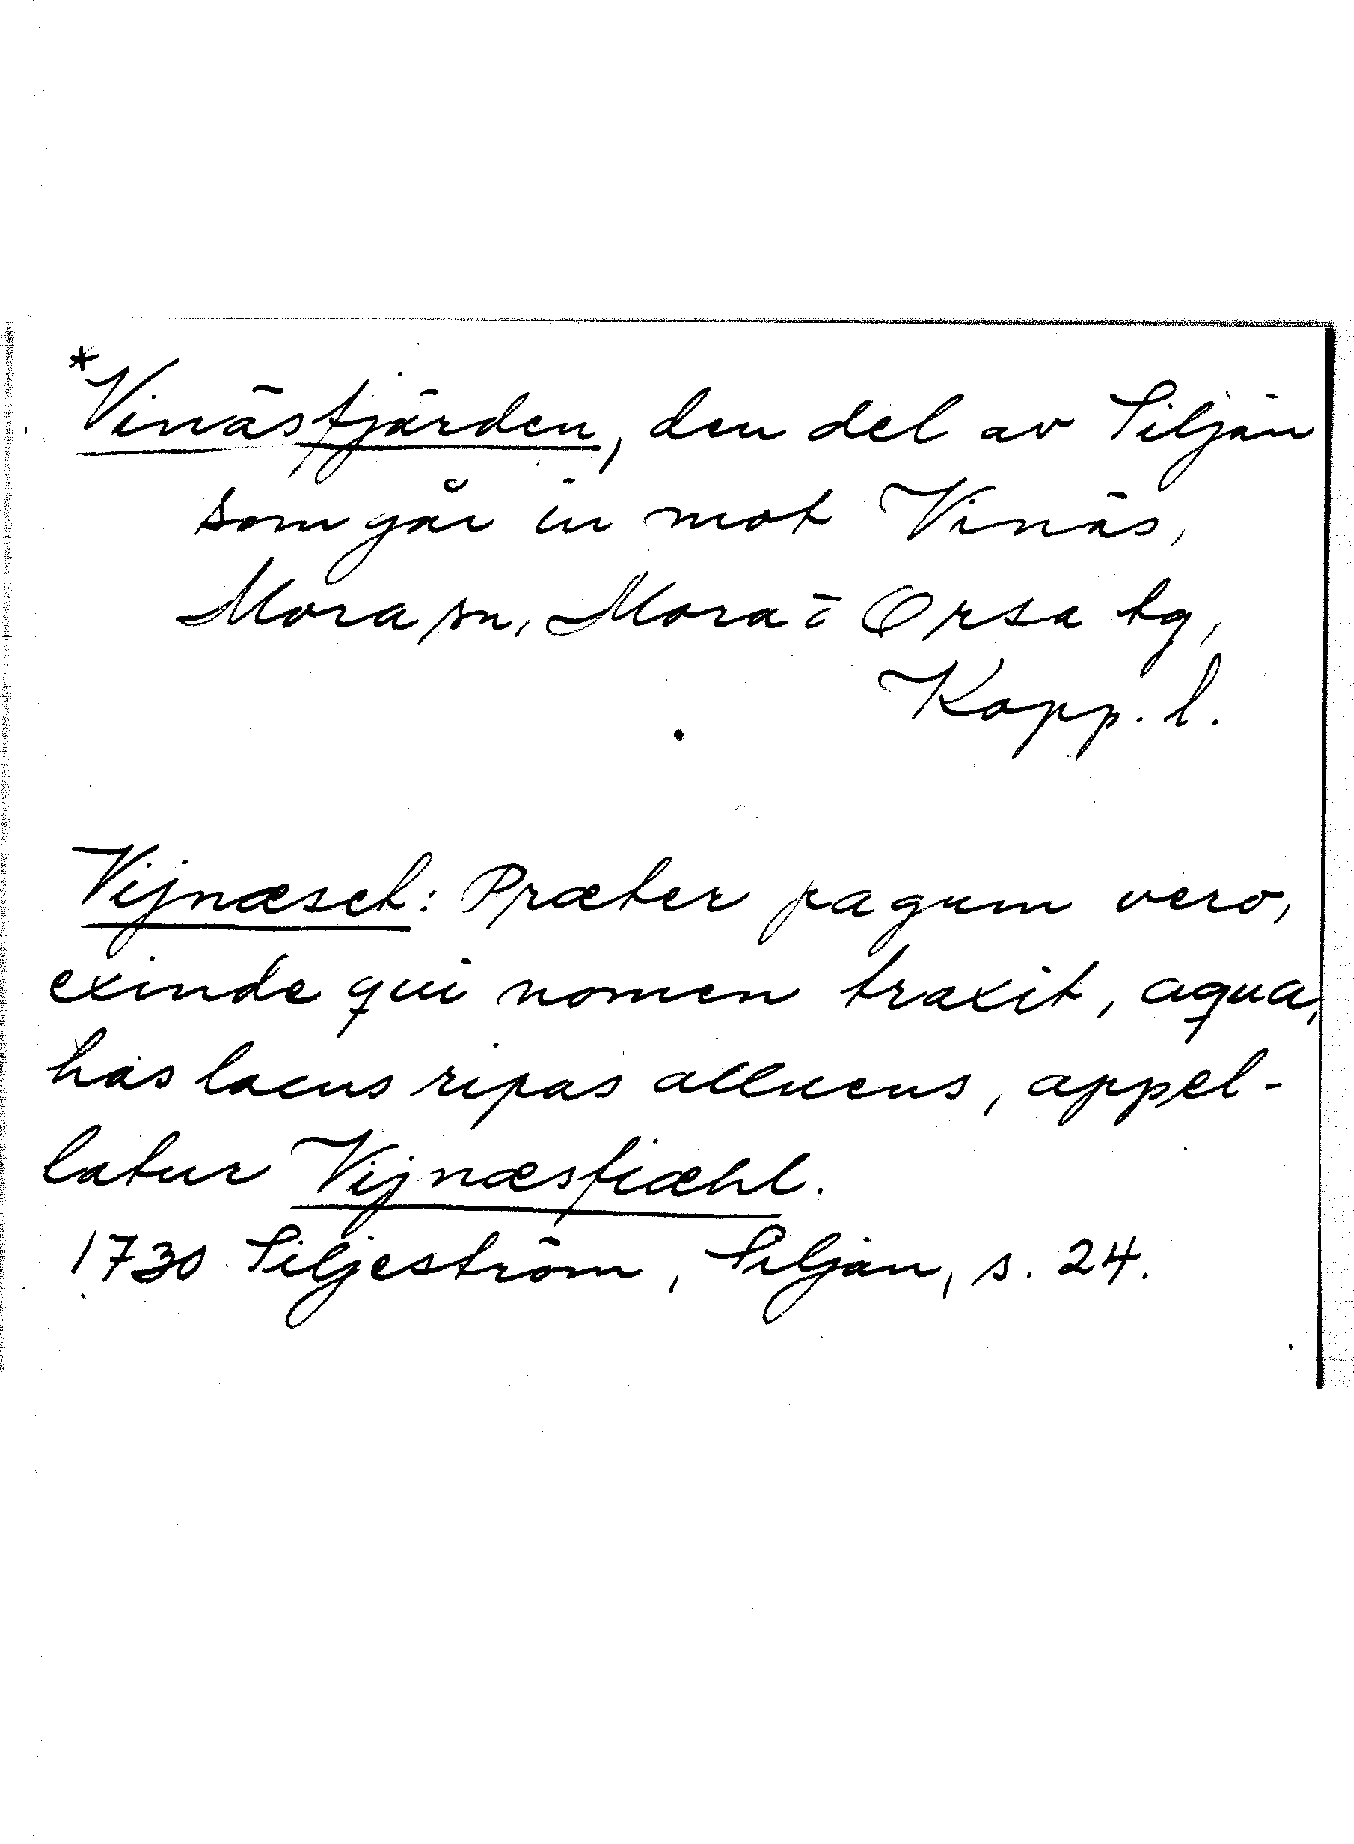 *Vinäsfjärden, den del av Siljan
som går in mot Vinäs,
Mora sn, Mora o Orsa tg,
Kopp. l.
Vijnæset: Præter pagum vero,
exinde qui nomen traxit, aqua,
has lacus ripas alluens, appel-
latur Vijnæsfiæhl.
1730 Siljeström, Siljan, s. 24.